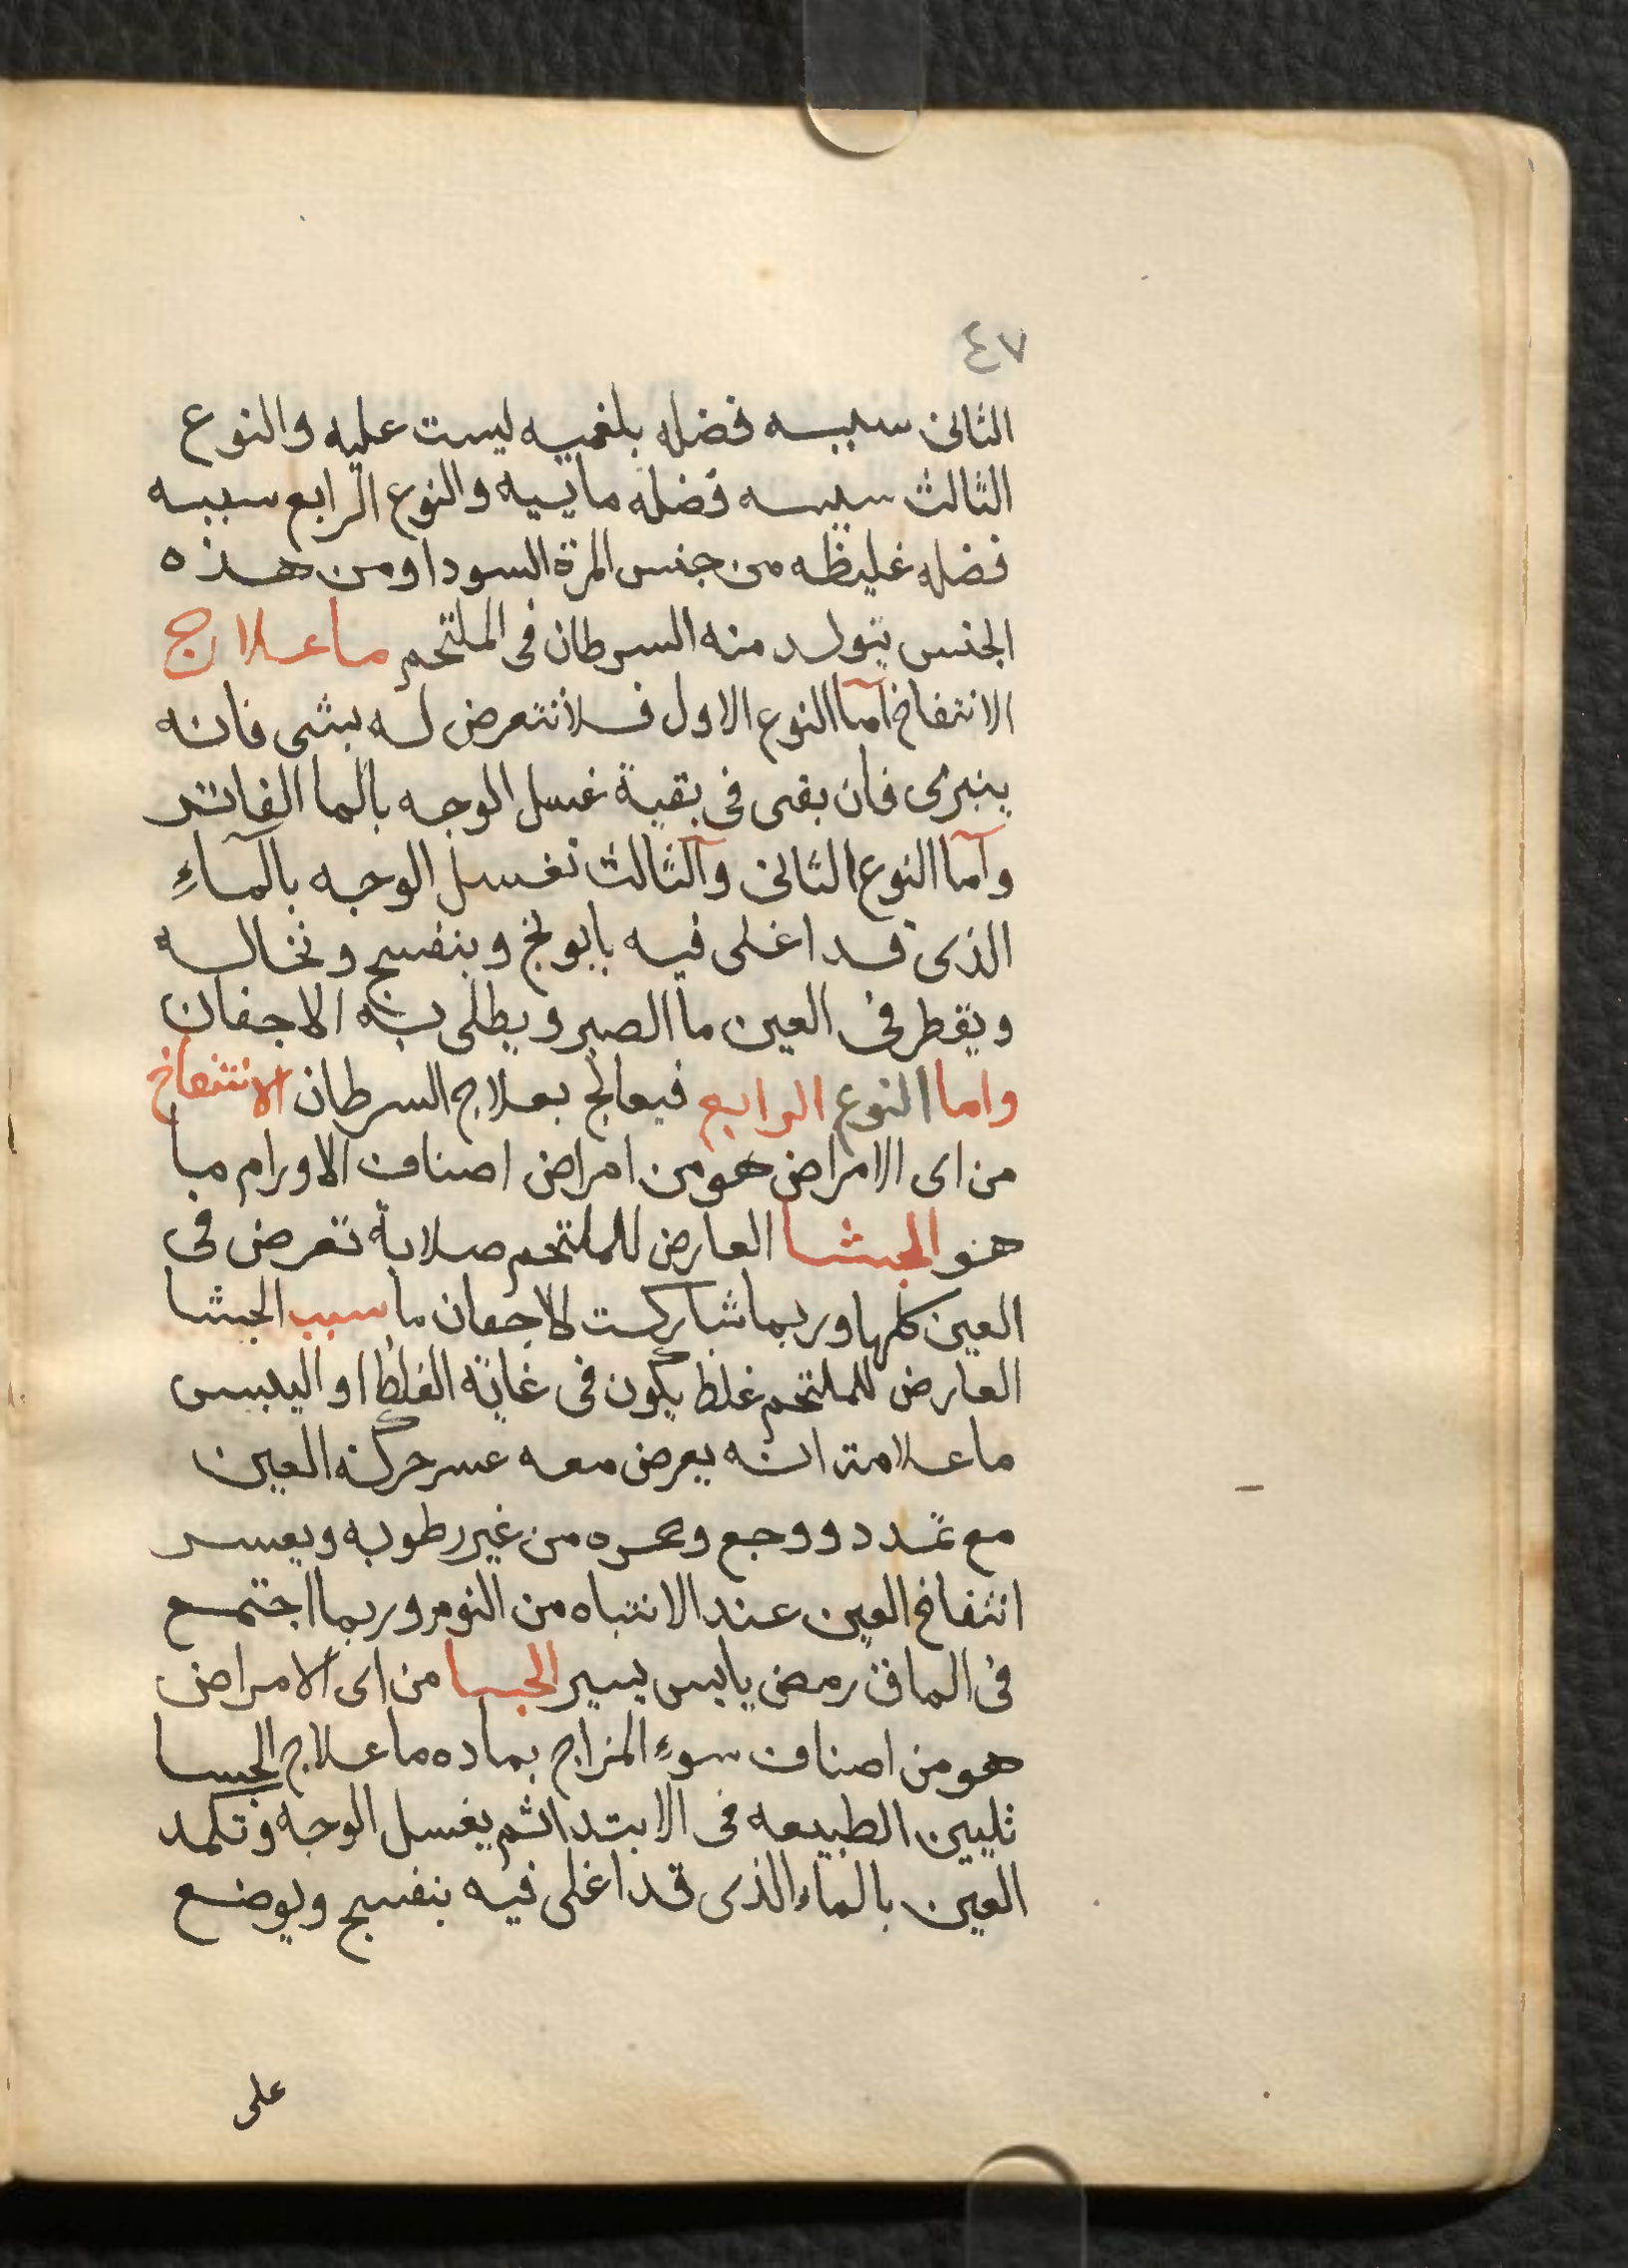 ٤٧
الثانى سببه فضله بلغميه ليست عليه والنوع
الثالث سببه فضله ماييه والنوع الرابع سببه
فضله غليظه من جنس المرة السودا ومن هذه
الجنس يتولد منه السرطان فى الملتحم ما علاج
الانتفاخ اما النوع الاول فلا نتعرض له بشى فانه
ينبرى فان بقى فى بقية غسل الوجه بالما الفاتر
وآما النوع الثانى وآلثالث تغسل الوجه بالمآءِ
الذى قد اغلى فيه بابونج وبنفسج ونخاله
ويقطر فى العين ما الصبر ويطلى به الاجفان
واما النوع الرابع فيعالج بعلاج السرطان الانتفاخ
من اى الامراض هو من امراض اصناف الاورام ما
هو الجشا العارض للملتحم صلابة تعرض فى
العين كلها وربما شاركت الاجفان ما سبب الجشا
العارض للملتحم غلظ يكون فى غاية الغلظ او اليبس
ما علامته انه يعرض معه عسر حركة العين
مع تمدد ووجع وحمره من غير رطوبه ويعسر
انتفاخ العين عند الانتباه من النوم وربما اجتمع
فى الماق رمض يابس يسير الجسا من اى الامراض
هو من اصناف سوء المزاج بماده ما علاج الجسا
تليين الطبيعه فى الابتدا ثم يغسل الوجه وتكمد
العين بالماء الذى قد اغلى فيه بنفسج ويوضع
على